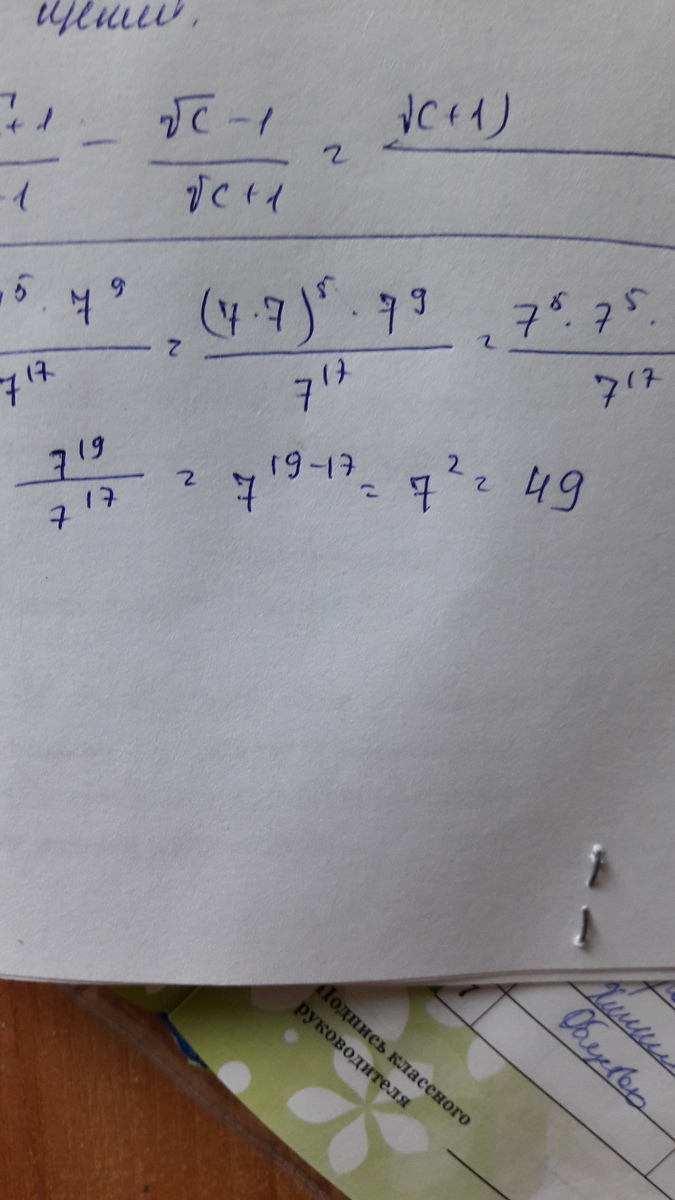 +1 / -1 - √c - 1 / √c + 1 = √c + 1)
5 · 7⁹ / 7¹⁷ = (7·7)⁵ · 7⁹ / 7¹⁷ = 7⁵ · 7⁵ · / 7¹⁷
7¹⁹ / 7¹⁷ = 7¹⁹⁻¹⁷ = 7² = 49
Подпись классного
руководителя